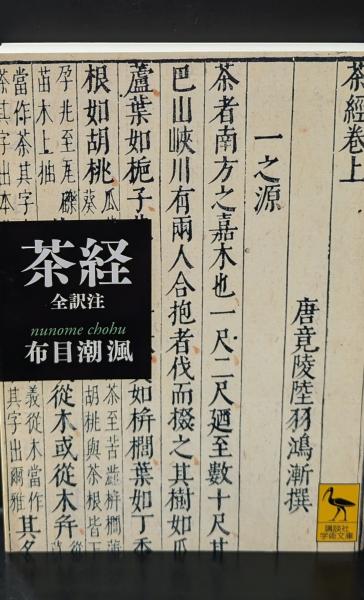 茶經卷上
唐竟陵陸羽鴻漸撰
一之源
茶者南方之嘉木也一尺二尺廼至數十尺其
巴山峽川有兩人合抱者伐而掇之其樹如瓜
蘆葉如梔子
如栟櫚葉如丁香
根如胡桃
瓜
茶至苦澁栟櫚蒲
葵
胡桃與茶根皆下
孕兆至瓦礫
苗木上抽
從木或從木并
當作茶其字
茶其字出本
義從木當作
其字出爾雅
其名
茶経
全訳注
nunome chohu
布目潮渢
講談社
学術文庫